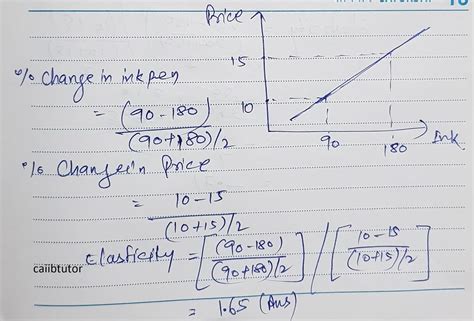 Price
15
10
90
180
Ink
% Change in ink pen
= (90-180)
(90+180)/2
% Change in Price
= 10-15
(10+15)/2
Elasticity = [(90-180) / (90+180)/2] / [10-15 / (10+15)/2]
= 1.65 (Ans)
caiibtutor